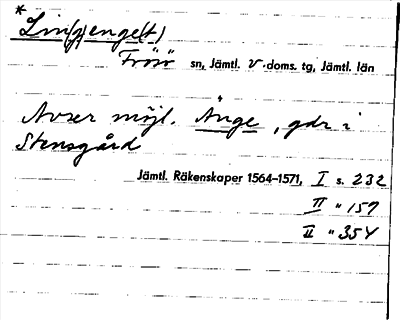 *
Lin(g)enge(t)
Frösö sn, Jämtl. v. doms. tg, Jämtl. län
Avser möjl. Änge, gdr i
Stensgård
Jämtl. Räkenskaper 1564–1571, I s. 232
II " 157
II " 354